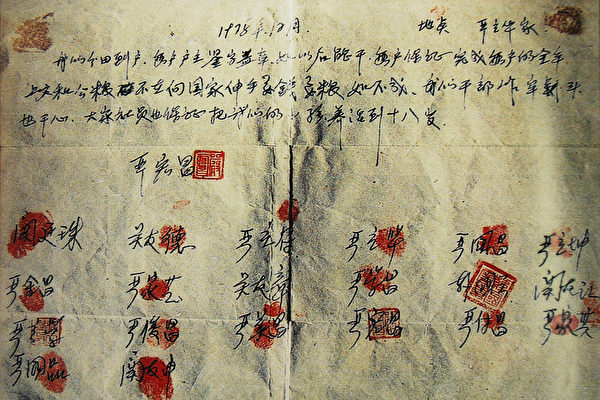 1978年12月. 地点 严立华家
我们分田到户，每户户主签字盖章，如以后能干，每户保证完成每户的全年
上交和公粮，不在向国家伸手要钱要粮，如不成，我们干部作牢杀头
也干心，大家社员也保证把我们的小孩养活到十八岁。
严宏昌
关廷珠 关友德 严立付 严立华 严国昌 严立坤
严金昌 严家芝 关友章 严学昌 韩国云 关友江
严俊昌 严美昌 严宏昌 严付昌 严家其
严国品 关友申